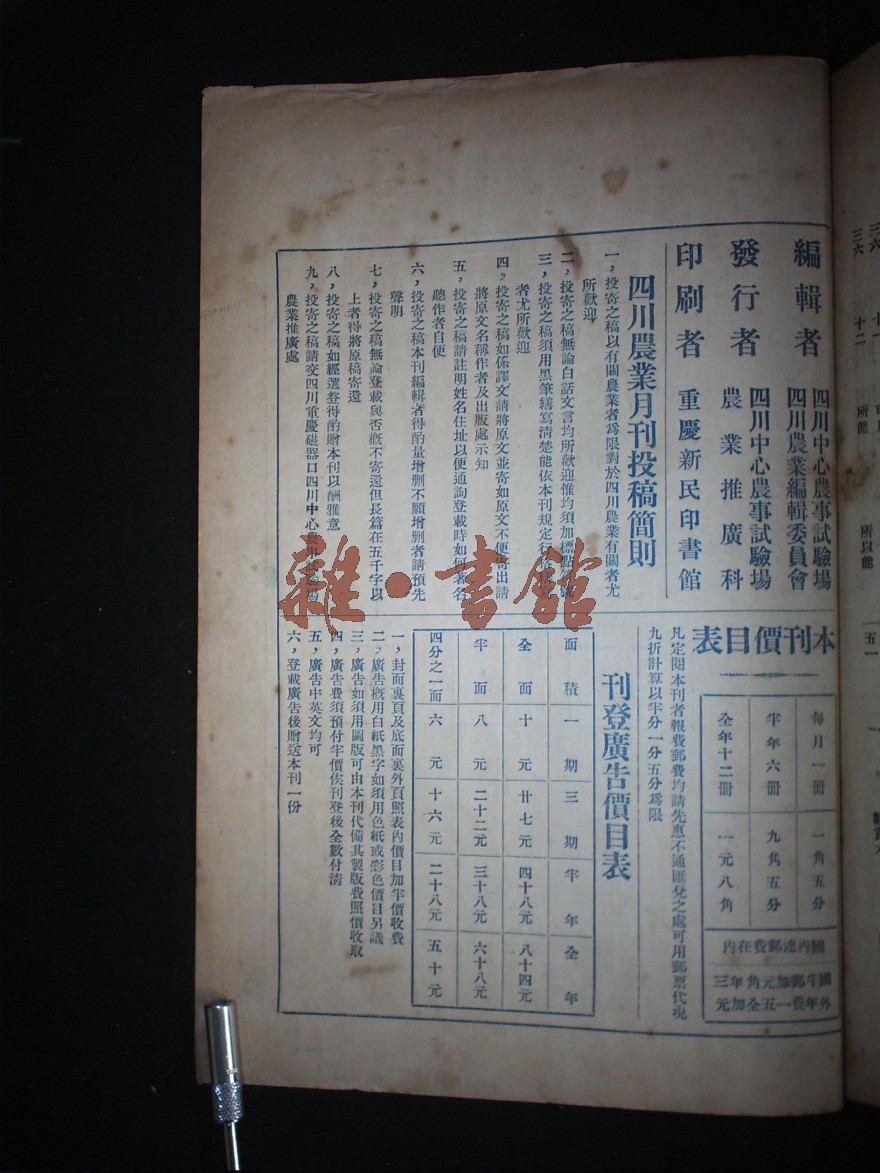 編輯者
四川中心農事試驗場
四川農業編輯委員會
發行者
四川中心農事試驗場
農業推廣科
印刷者
重慶新民印書館
四川農業月刊投稿簡則
一，投寄之稿以有關農業者爲限對於四川農業有關者尤
所歡迎
二，投寄之稿無論白話文言均所歡迎惟均須加標點
三，投寄之稿須用黑筆繕寫清楚能依本刊規定行
者尤所歡迎
四，投寄之稿如係譯文請將原文並寄如原文不便寄出請
將原文名稱作者及出版處示知
五，投寄之稿請註明姓名住址以便通詢登載時如何署名
聽作者自便
六，投寄之稿本刊編輯者得酌量增删不願增删者請預先
聲明
七，投寄之稿無論登載與否概不寄還但長篇在五千字以
上者得將原稿寄還
八，投寄之稿如經選登得酌贈本刊以酬雅意
九，投寄之稿請交四川重慶磁器口四川中心農事試驗場
農業推廣處
本刊價目表
每月一冊 一角五分
半年六冊 九角五分
全年十二冊 一元八角
國內連郵費在內
國外郵費半年加一元五角全年加三元
凡定閱本刊者報費郵費均請先惠不通匯兌之處可用郵票代現
九折計算以半分一分五分爲限
刊登廣告價目表
面積 一期 三期 半年 全年
全面 十元 廿七元 四十八元 八十四元
半面 八元 二十二元 三十八元 六十八元
四分之一面 六元 十六元 二十八元 五十元
一，封面裏頁及底面裏外頁照表內價目加半價收費
二，廣告概用白紙黑字如須用色紙或彩色價目另議
三，廣告如須用圖版可由本刊代備其製版費照價收取
四，廣告費須預付半價俟刊登後全數付清
五，廣告中英文均可
六，登載廣告後贈送本刊一份
雜·書館
三六
十二
所能
所以能
五一